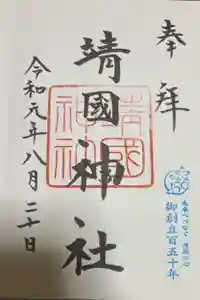 奉拝
靖國神社
靖國神社
令和元年八月二十日
御創立百五十年